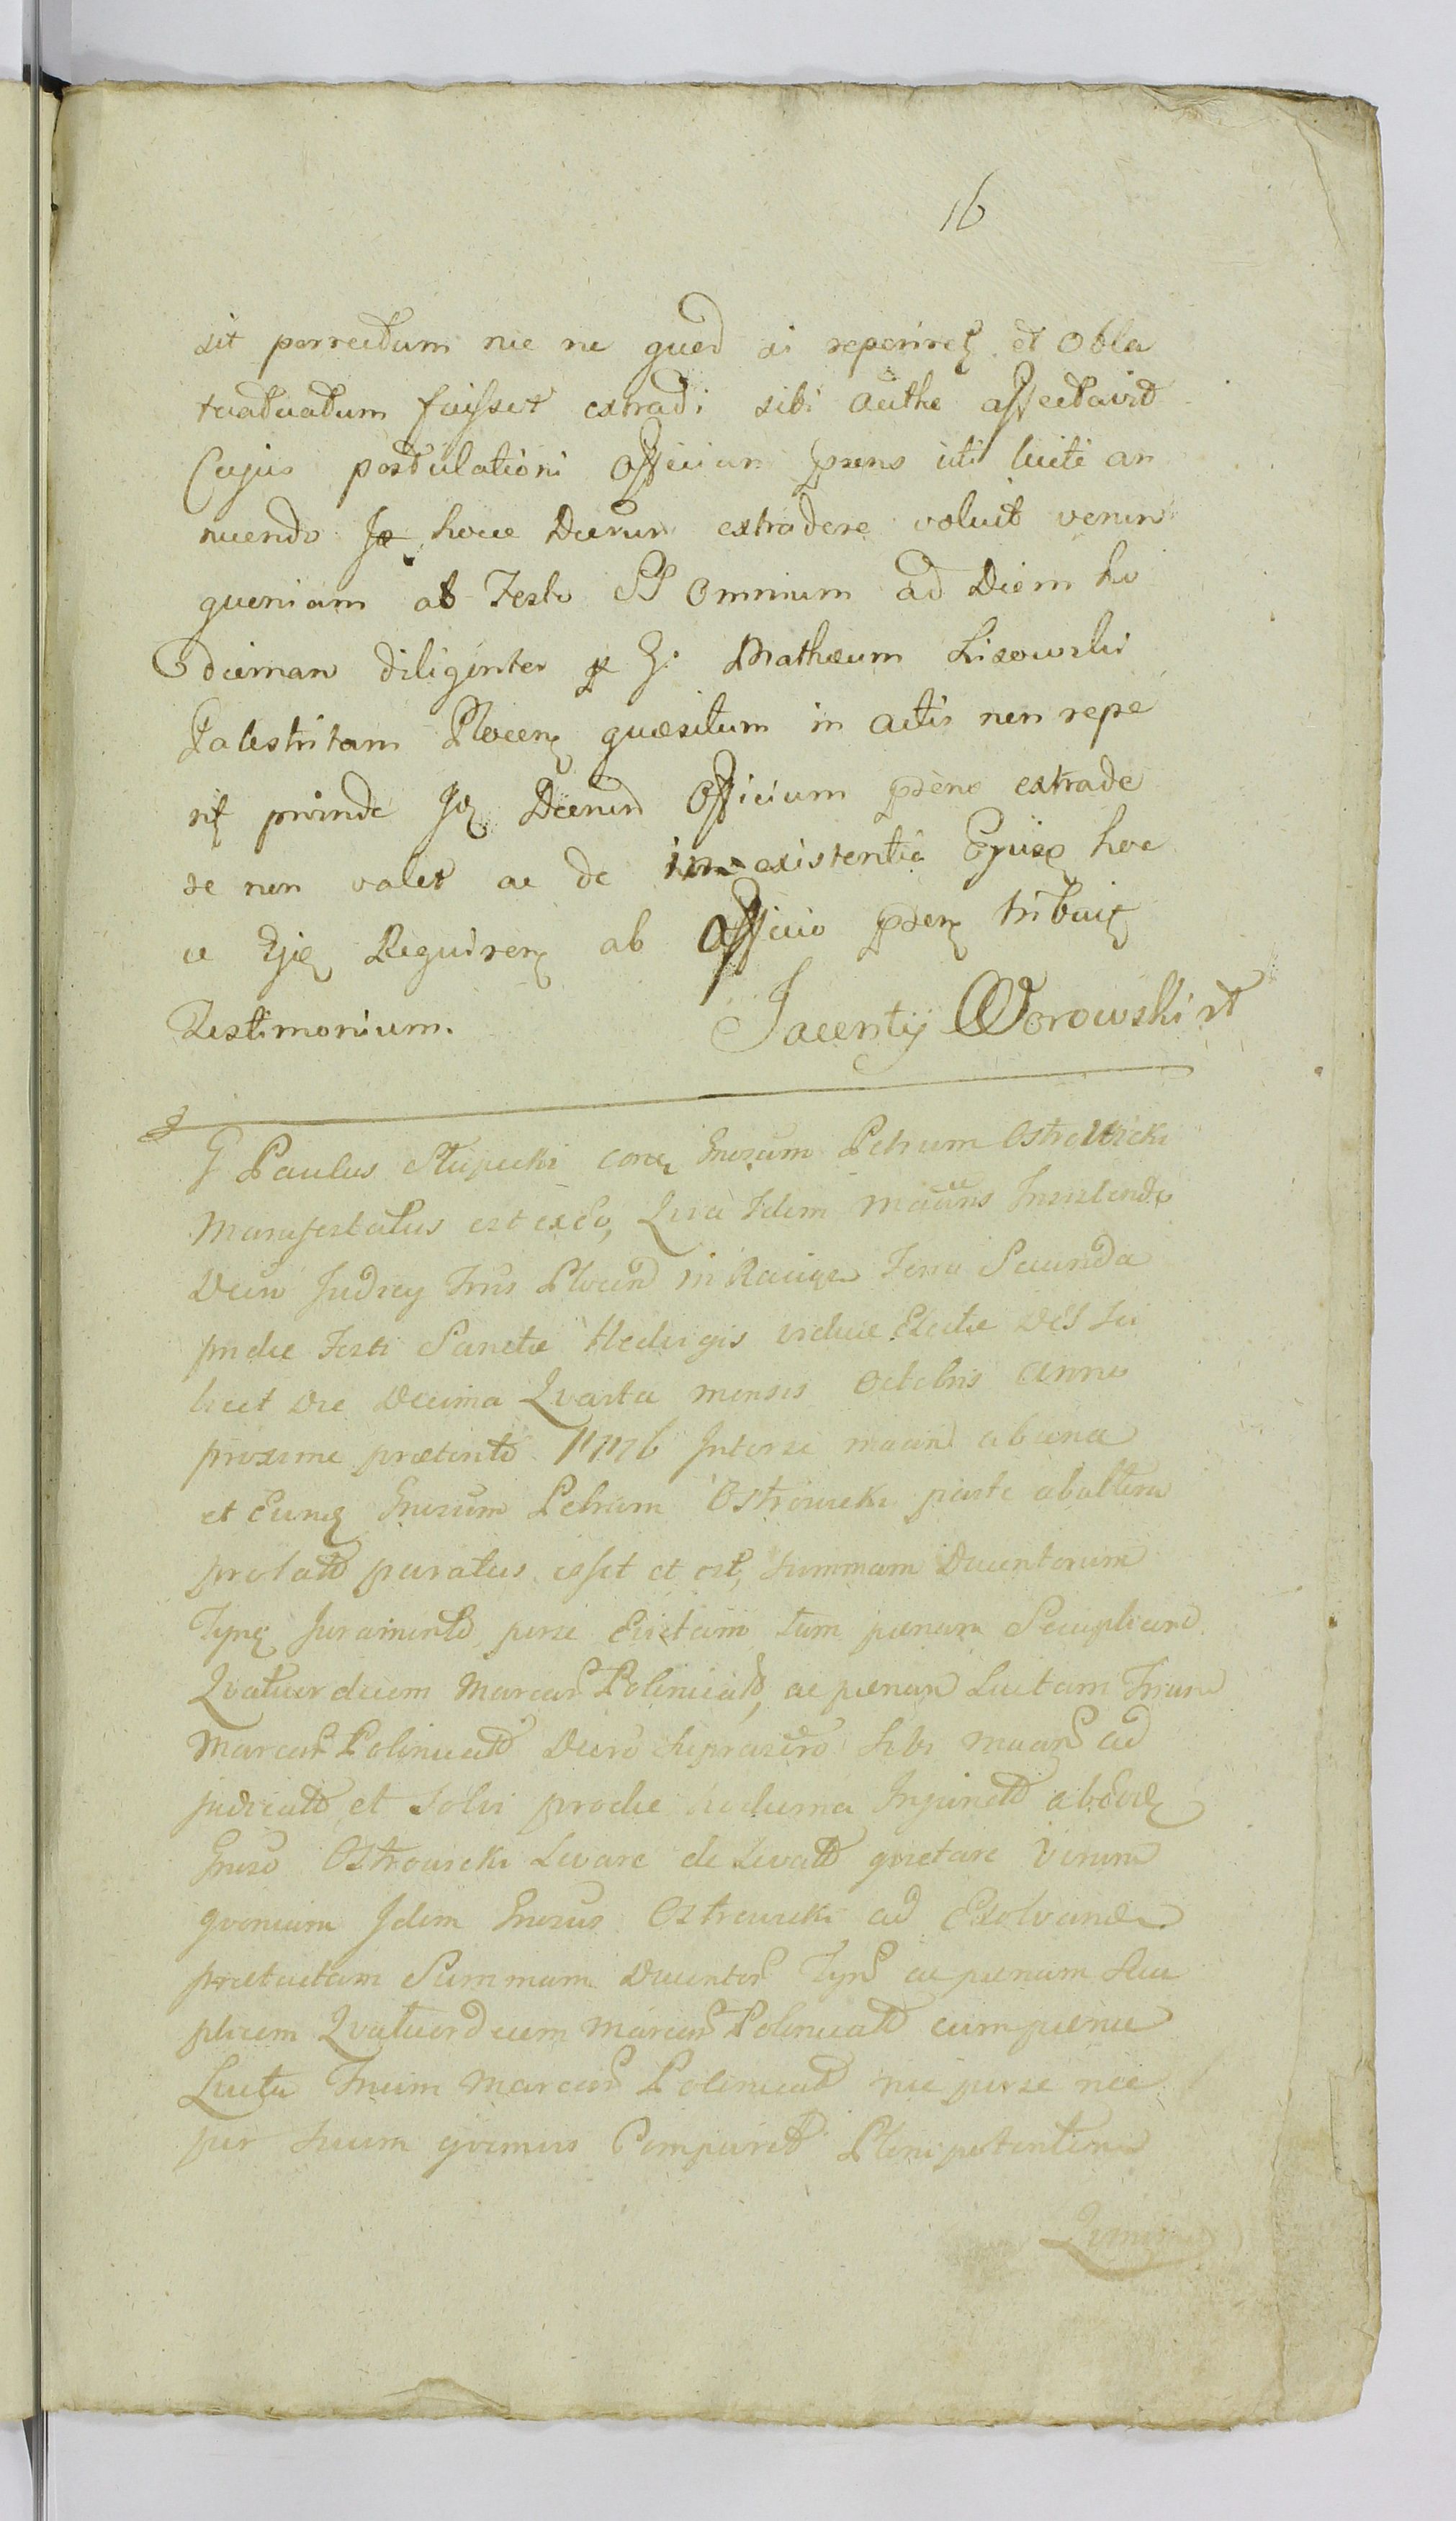 16
sit porrectum nec ne quod si reperiret et obla
tuatuatum fuisset extradi sibi authe affectavit
Cujus postulationi Officium prens uti licite an
nuendo hocce Decrum extradere voluit verum
quoniam ab Festo SS Omnium ad Diem ho
diernam diligenter p G. Mathæum Lisowski
Palestritam Plocen quæsitum in actis non repe
rit proinde Id Decrum Officium præns extrade
re non valet ac de inexistentia Ejusq hoc
ce Ejq Requiren ab Officio præn tribuit
Testimonium. Jacenty Worowski
G Paulus Słupecki Gnrosum Petrum Ostrowicki
Manifestatus est exEo, Qvia Idem Manns Insistendo
Decro Judicy Trris Plocen in Raciąż Feria Secunda
pridie Festi Sanctæ Hedvigis viduæ Electæ Dei sci
licet Die Decima Qvarta mensis Octobris Anno
proxime præterito 1776 Inter se Maan ab una
et Eunq Gnrosum Petrum Ostrowicki parte ab altera
prolato paratus esset et est, Summam Ducentorum
Tynf Juramento per se Evictam tum pænam Secuplicem
Qvatuordecim Marcar Polonicals, ac pænam Luitam Trium
Marcar Polonicals Decro Suprascro sibi Maan ad
judicats et solvi pro die hodierna Injuncts ab Eodq
Gnroso Ostrowicki Levare de Levats qvietare Verum
qvoniam Idem Gnrosus Ostrowicki ad Exolvendam
prætactam Summam Ducentor Tynf ac pænam Secu
plicem Qvatuordecim Marcar Polonicals cum pæna
Luita Trium Marcar Polonicals nec per se nec
per suum qvemvis Comparuit Plenipotentem